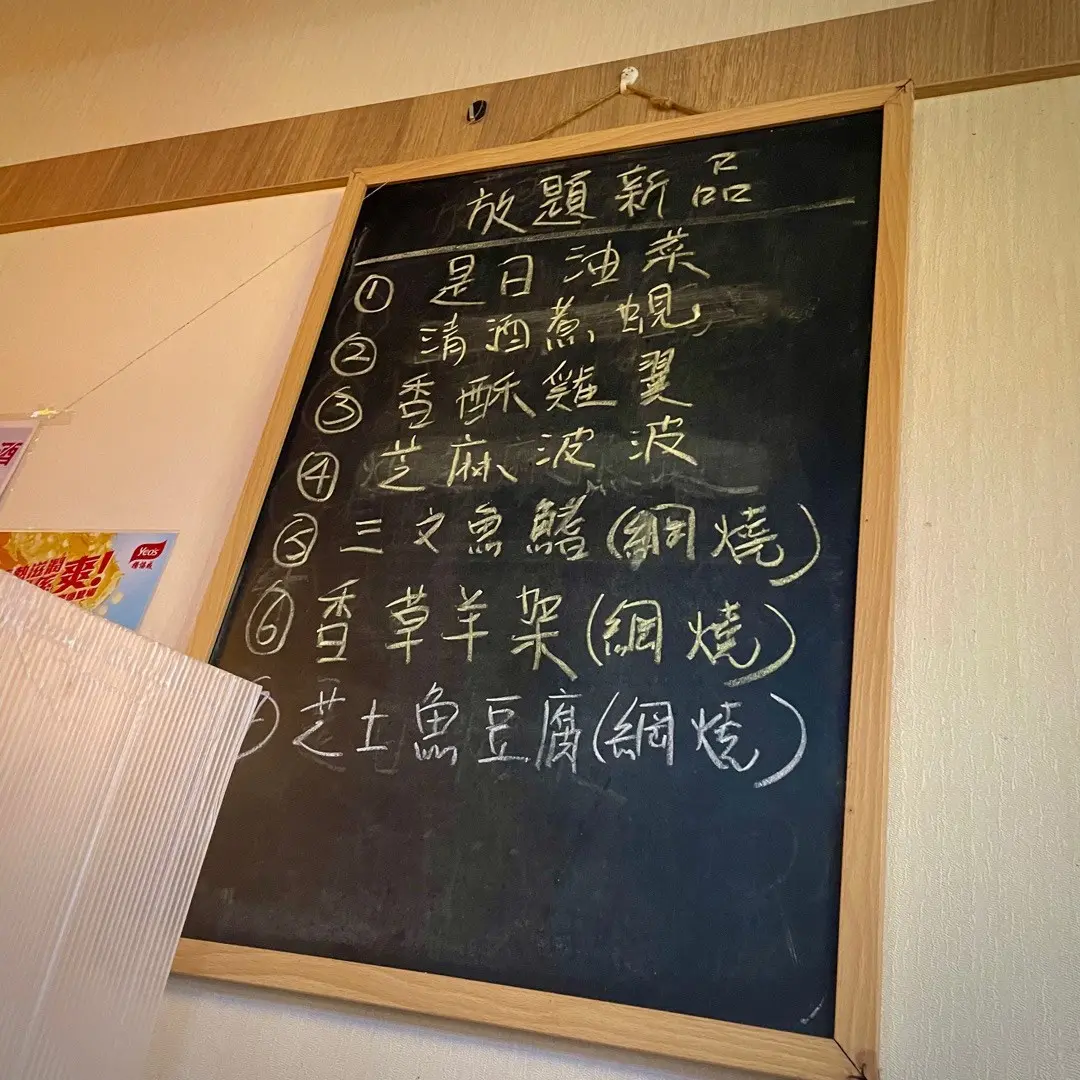 放題新品
① 是日油菜
② 清酒煮蜆
③ 香酥雞翼
④ 芝麻波波
⑤ 三文魚鰭(網燒)
⑥ 香草羊架(網燒)
芝士魚豆腐(網燒)
酒
爽!
Yeo's
楊協成